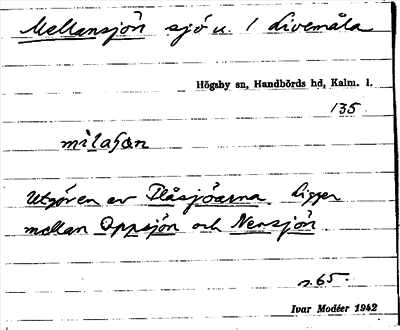 Mellansjön sjö u. 1 Livemåla
Högsby sn, Handbörds hd, Kalm. l.
135
Utgör en av Flåsjöarna. Ligger
mellan Oppsjön och Nersjön
s. 65
Ivar Modéer 1942